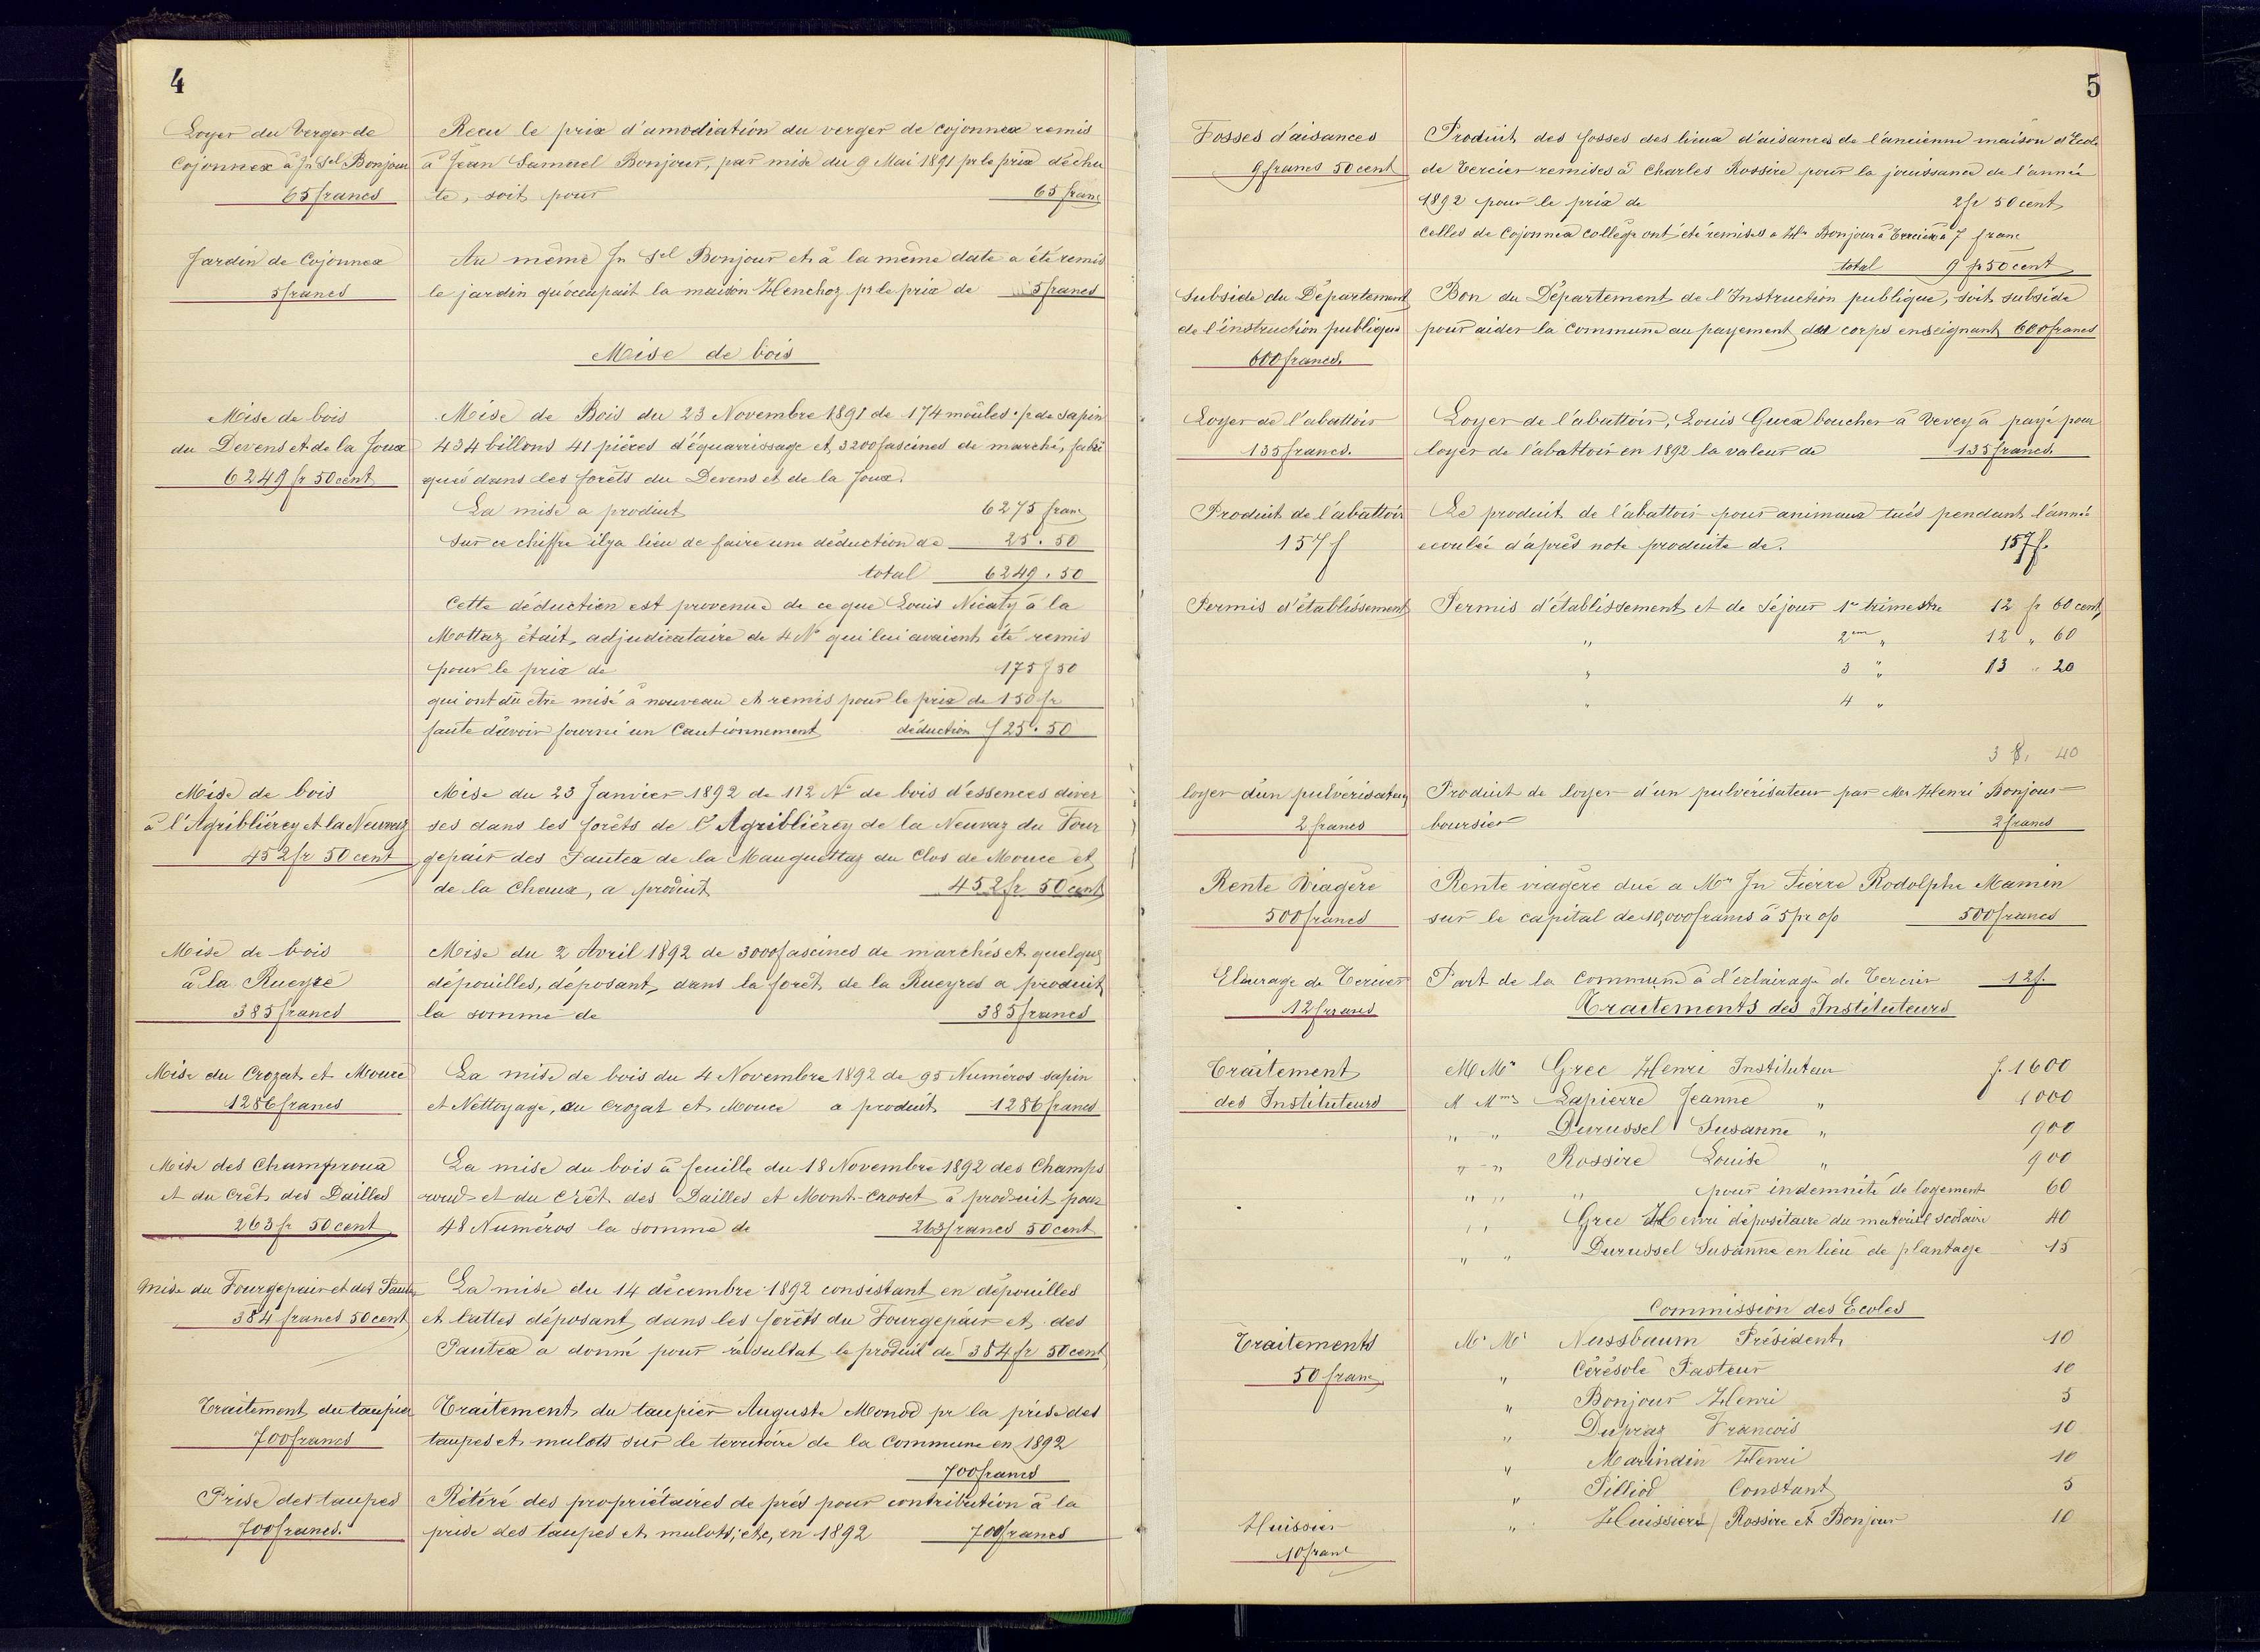 4
Loyer du Verger de
Cojonnex à Jn Sel Bonjour
65 francs
Recu le prix d'amodiation du verger de cojonnex remis
à Jean Samuel Bonjour, par mise du 9 Mai 1891 pr le prix d'échu
te, soit pour 65 franc
Jardin de Cojonnex
5 francs
Au même Jn Sel Bonjour et à la même date a été remis
le jardin qu'occupait la maison Henchoz pr le prix de 5 francs
Mise de bois
Mise de bois
du Devens et de la Joux
6249 fr 50 cent
Mise de Bois du 23 Novembre 1891 de 174 moûles de sapin
434 billons 41 pièces d'équarrissage et 3200 fascines de marché, fabri
qué dans les forêts du Devens et de la Joux.
La mise a produit 6275 franc
Sur ce chiffre il y a lieu de faire une déduction de 25.50
total 6249.50
Cette déduction est provenue de ce que Louis Nicaty à la
Mottaz était adjudicataire de 4 No qui lui avaient été remis
pour le prix de 175 f 50
qui ont dû être misé à nouveau et remis pour le prix de 150 fr
faute d'avoir fourni un Cautionnement déduction f 25.50
Mise de bois
à l'Agribliérey et la Neuvaz
452 fr 50 cent
Mise du 23 Janvier 1892 de 112 No de bois d'essences diver
ses dans les forêts de l'Agribliérey de la Neuvaz du Four
gepair des Pautex de la Mauguettaz du Clos de Mouce et
de la Chaux, a produit 452 fr 50 cent
Mise de bois
à la Rueyre
385 francs
Mise du 2 Avril 1892 de 3000 fascines de marchés et quelques
dépouilles, déposant, dans la forêt de la Rueyres a produit
la somme de 385 francs
Mise du Crozat et Mouce
1286 francs
La mise de bois du 4 Novembre 1892 de 95 Numéros sapin
et Nettoyage, au Crozat et Mouce a produit 1286 francs
Mise des Champroux
et du Crêt des Dailles
263 fr 50 cent
La mise du bois à feuille du 18 Novembre 1892 des Champs
roud et du Crêt des Dailles et Mont-Croset à produit pour
48 Numéros la somme de 263 francs 50 cent
Mise du Fourgepair et des Pautex
384 francs 50 cent
La mise du 14 décembre 1892 consistant en dépouilles
et lattes déposant, dans les forêts du Fourgepair et des
Pautex a donné pour résultat le produit de 384 fr 50 cent
Traitement du taupier
700 francs
Traitement du taupier Auguste Monod pr la prise des
taupes et mulots sur le territoire de la Commune en 1892
700 francs
Prise des taupes
700 francs.
Rétéré des propriétaires de prés pour contribution à la
prise des taupes et mulots, etc, en 1892 700 francs
5
Fosses d'aisances
9 francs 50 cent
Produit des fosses des lieux d'aisances de l'ancienne maison d'Ecole
de Tercier remises à Charles Rossire pour la jouissance de l'année
1892 pour le prix de 2 fr 50 cent
Celles de Cojonnex collège ont été remises a Hri Bonjour à Tercier à 7 franc
total 9 fr 50 cent
Subside du Département
de l'instruction publique
600 francs.
Bon du Département de l'Instruction publique, soit subside
pour aider la Commune au payement du corps enseignant 600 francs
Loyer de l'abattoir
135 francs.
Loyer de l'abattoir, Louis Guex boucher à Vevey à payé pour
loyer de l'abattoir en 1892 la valeur de 135 francs
Produit de l'abattoir
157 f
Le produit de l'abattoir pour animaux tués pendant l'année
ecoulée d'après note produite de. 157 f.
Permis d'établissement
Permis d'établissement et de Séjour 1er trimestre 12 fr 60 cent
" 2em " 12 " 60
" 3 " 13 " 20
" 4 "
3 8. 40
loyer d'un pulvérisateur
2 francs
Produit de loyer d'un pulvérisateur par Mr Henri Bonjour
boursier 2 francs
Rente Viagère
500 francs
Rente viagère due a Mr Jn Pierre Rodolphe Mamin
sur le capital de 10,000 francs à 5 pr o/o 500 francs
Elairage de Tercier
12 francs
Part de la Commune à l'eclairage de Tercier 12 f.
Traitements des Instituteurs
Traitement
des Instituteurs
M Mr Grec Henri Instituteur f. 1600
M Mme Lapierre Jeanne " 1000
" " Durussel Susanne " 900
" " Rossire Louise " 900
" " " pour indemnité de logement 60
" " Grec Henri dépositaire du matériel scolaire 40
" " Durussel Susanne en lieu de plantage 15
Commission des Ecoles
Traitements
50 franc
Mr Mr Nussbaum Président 10
" Cérésole Pasteur 10
" Bonjour Henri 5
" Dupraz Francois 10
" Marindin Henri 10
" Pilliod Constant 5
Huissier
10 franc
" Huissiers / Rossire et Bonjour 10